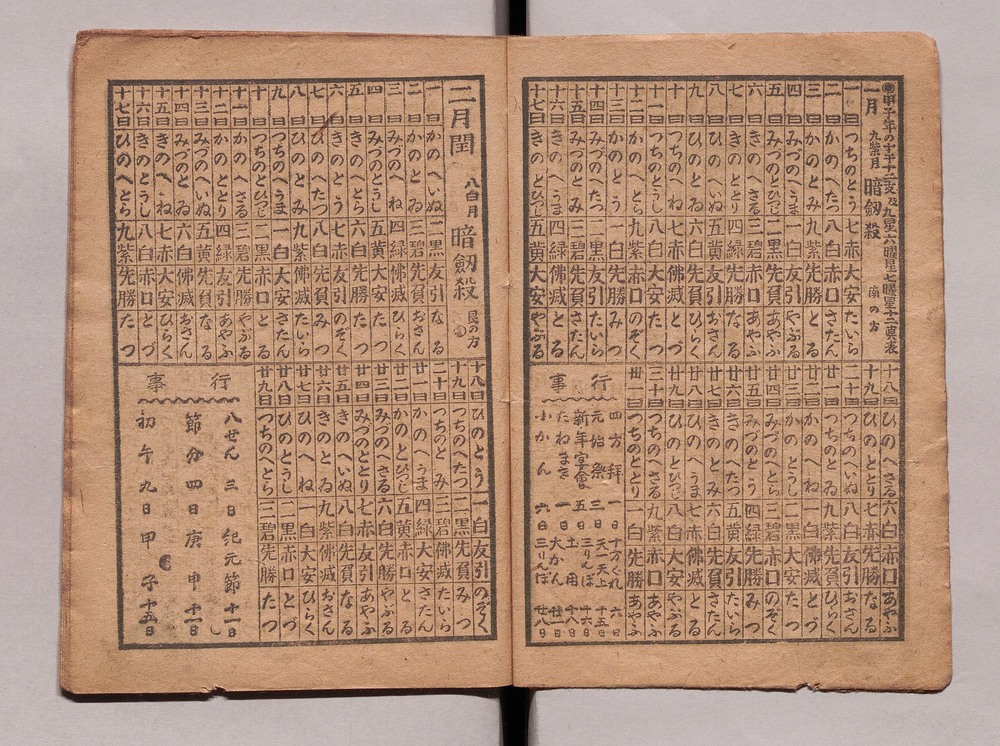 ◉甲子年の十干十二支及九星六曜星七曜星十二直表
一月 九紫月 暗劔殺 南の方
一日 つちのとう 七赤 大安 たいら
二日 かのへたつ 八白 赤口 さたん
三日 かのとみ 九紫 先勝 とる
四日 みづのへうま 一白 友引 やぶる
五日 みづのとひつじ 二黒 先負 あやぶ
六日 きのへさる 三碧 赤口 あやぶ
七日 きのととり 四緑 先勝 なる
八日 ひのへいぬ 五黄 友引 おさん
九日 ひのとゐ 六白 先負 ひらく
十日 つちのへね 七赤 佛滅 とづ
十一日 つちのとうし 八白 大安 たつ
十二日 かのへとら 九紫 赤口 のぞく
十三日 かのとう 一白 先勝 みつ
十四日 みづのへたつ 二黒 友引 たいら
十五日 みづのとみ 三碧 先負 さたん
十六日 きのへうま 四緑 佛滅 とる
十七日 きのとひつじ 五黄 大安 やぶる
十八日 ひのへさる 六白 赤口 あやぶ
十九日 ひのととり 七赤 先勝 なる
二十日 つちのへいぬ 八白 友引 おさん
廿一日 つちのとゐ 九紫 先負 ひらく
廿二日 かのへね 一白 佛滅 とづ
廿三日 かのとうし 二黒 大安 たつ
廿四日 みづのへとら 三碧 赤口 のぞく
廿五日 みづのとう 四緑 先勝 みつ
廿六日 きのへたつ 五黄 友引 たいら
廿七日 きのとみ 六白 先負 さたん
廿八日 ひのへうま 七赤 佛滅 とる
廿九日 ひのとひつじ 八白 大安 やぶる
三十日 つちのへさる 九紫 赤口 あやぶ
卅一日 つちのととり 一白 先勝 あやふ
行事
四方拜 一日 十方くれ 六日
元始祭 三日 天一天上 十五日
新年宴會 五日 三りんぼ 十六日
たねまき 一日 土用 十八日
小かん 六日 大かん 廿一日
三りんぼ 廿八日
二月閏 八白月 暗劔殺 艮の方
一日 かのへいぬ 二黒 友引 なる
二日 かのとゐ 三碧 先負 おさん
三日 みづのへね 四緑 佛滅 ひらく
四日 みづのとうし 五黄 大安 たつ
五日 きのへとら 六白 先勝 たつ
六日 きのとう 七赤 友引 のぞく
七日 ひのへたつ 八白 先負 みつ
八日 ひのとみ 九紫 佛滅 たいら
九日 つちのへうま 一白 大安 さたん
十日 つちのとひつじ 二黒 赤口 とる
十一日 かのへさる 三碧 先勝 やぶる
十二日 かのととり 四緑 友引 あやふ
十三日 みづのへいぬ 五黄 先負 なる
十四日 みづのとゐ 六白 佛滅 おさん
十五日 きのへね 七赤 大安 ひらく
十六日 きのとうし 八白 赤口 とづ
十七日 ひのへとら 九紫 先勝 たつ
十八日 ひのとう 一白 友引 のぞく
十九日 つちのへたつ 二黒 先負 みつ
二十日 つちのとみ 三碧 佛滅 たいら
廿一日 かのへうま 四緑 大安 さたん
廿二日 かのとひつじ 五黄 赤口 とる
廿三日 みづのへさる 六白 先勝 やぶる
廿四日 みづのととり 七赤 友引 あやふ
廿五日 きのへいぬ 八白 先負 なる
廿六日 きのとゐ 九紫 佛滅 おさん
廿七日 ひのへね 一白 大安 ひらく
廿八日 ひのとうし 二黒 赤口 とづ
廿九日 つちのへとら 三碧 先勝 たつ
行事
八せん 三日 紀元節 十一日
節分 四日 庚申 十一日
初午 九日 甲子 十五日